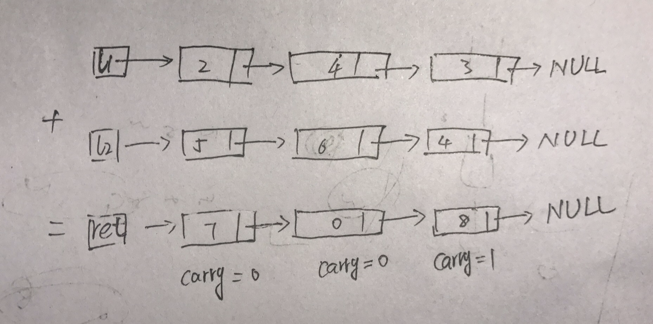 l1 → 2 → 4 → 3 → NULL
+
l2 → 5 → 6 → 4 → NULL
= ret → 7 → 0 → 8 → NULL
carry = 0 carry = 0 carry = 1